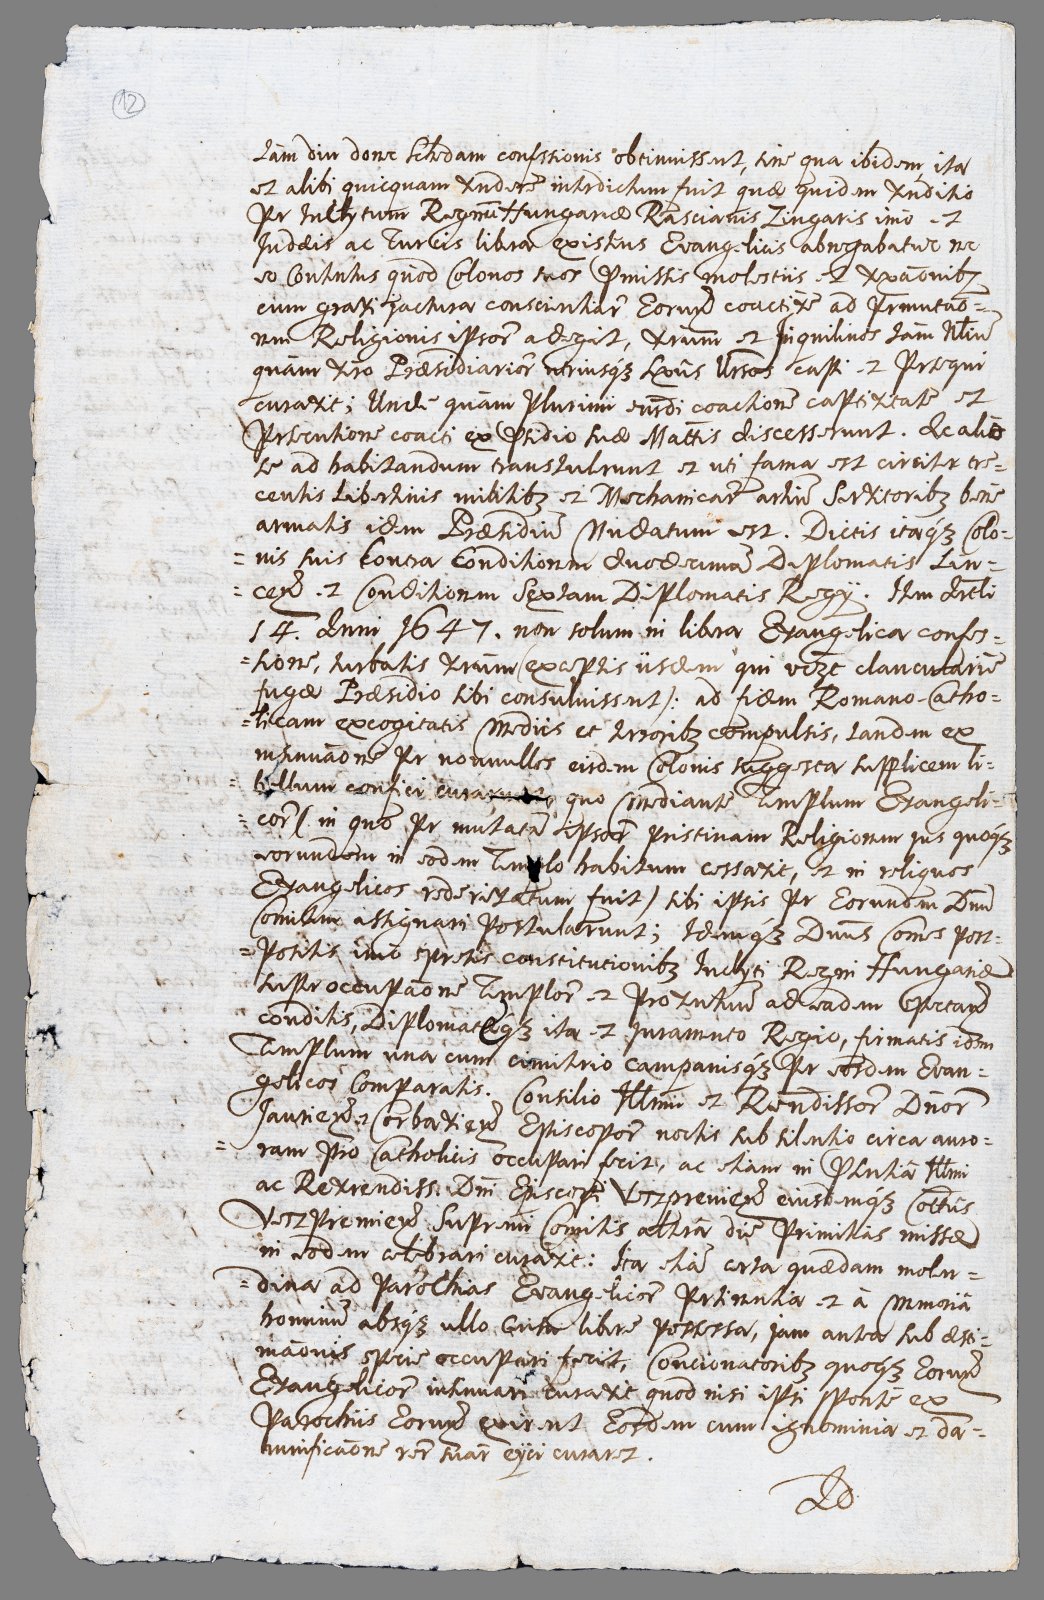 12
tam diu donec schedam confessionis obtinuissent, sine qua ibidem, ita
et alibi quicquam vendere interdictum fuit quae quidem venditio
per Inclytum Regnũ Hungariae Rascianis Zingaris imo et
Judaeis ac Turcis libera existens Evangelicis abnegabatur nec
eo contentus quod Colonos suos praemissis molestiis et vexãonibz
cum gravi jactura conscientiar Eorunđ coactive ad permutaõ-
nem Religionis ipsor adegit, verum et Inquilinos tam
quam vero Praesidiarior utriusqz sexus capi et persequi
curavit; Unde quam plurimi eiusdi coactione captivitate et
persecutione coacti ex psidio suae Mattis discesserunt. Ac alio
se ad habitandum transtulerunt et uti fama est circiter tre-
centis Libertinis militibz et Mechanicar artiũ Servitoribz bene
armatis idem Praesidiũ Nudatum est. Dictis itaqz Colo-
=nis suis Contra Conditionem duodecimã Diplomatis Lin-
=cenđ et Conditionem Sextam Diplomatis Regÿ. Item Artli
14. Anni 1647. non solum in libera Evangelica confes-
=sione, turbatis verum (exceptis iisdem qui clancularie
fugae Praesidio sibi consuluissent): ad fidem Romano-Catho-
=licam excogitatis Mediis et terroribz compulsis, tandem ex
insinuãone per nonnullos eisdem Colonis suggesta supplicem li-
=bellum confici quo Mediante Templum Evangeli-
=cor (in quo per mutatã ipsor pristinam Religionem jus quoqz
eorundem in eodem Templo habitum cessavit, et in reliquos
Evangelicos redderivatum fuit) sibi ipsis per Eorundem Dnũ
Comitem assignari postularunt; Idemqz Dnũs Comes post-
=positis imo spretis constitutionibz Inclyti Regni Hungariae
super occupãone Templor et proventuũ ad eadem spectanđ
conditis, Diplomateqz ita et juramento Regio, firmatis idem
Templum una cum cimiterio campanisqz per eosdem Evan-
gelicos Comparatis. Consilio Illmi et Rvendissor Dnor
Jaurienđ et Corbavienđ Episcopor noctis sub silentio circa auro-
=ram pro Catholicis occupari fecit, ac etiam in pſentiã Illmi
ac Reverendiss. Dni Episcopi Veszpremienđ eiusdemqz Cottus
Veszpremienđ Supremi Comitis alterã die Primitias missae
in eodem celebrari curavit: Ita etiã certa quaedam molen-
=dina ad Parochias Evangelicor pertinentia et à Memoriã
hominũ absqz ullo censu libere possessa, jam antea sub aesti-
mãonis specie occupari fecit, Concionatoribz quoqz Eorunđ
Evangelicor insinuari curavit quod nisi ipsi sponte ex
Parochiis Eorunđ exirent Eosdem cum ignominia et da-
mnificãone rer suar eÿci curaret.